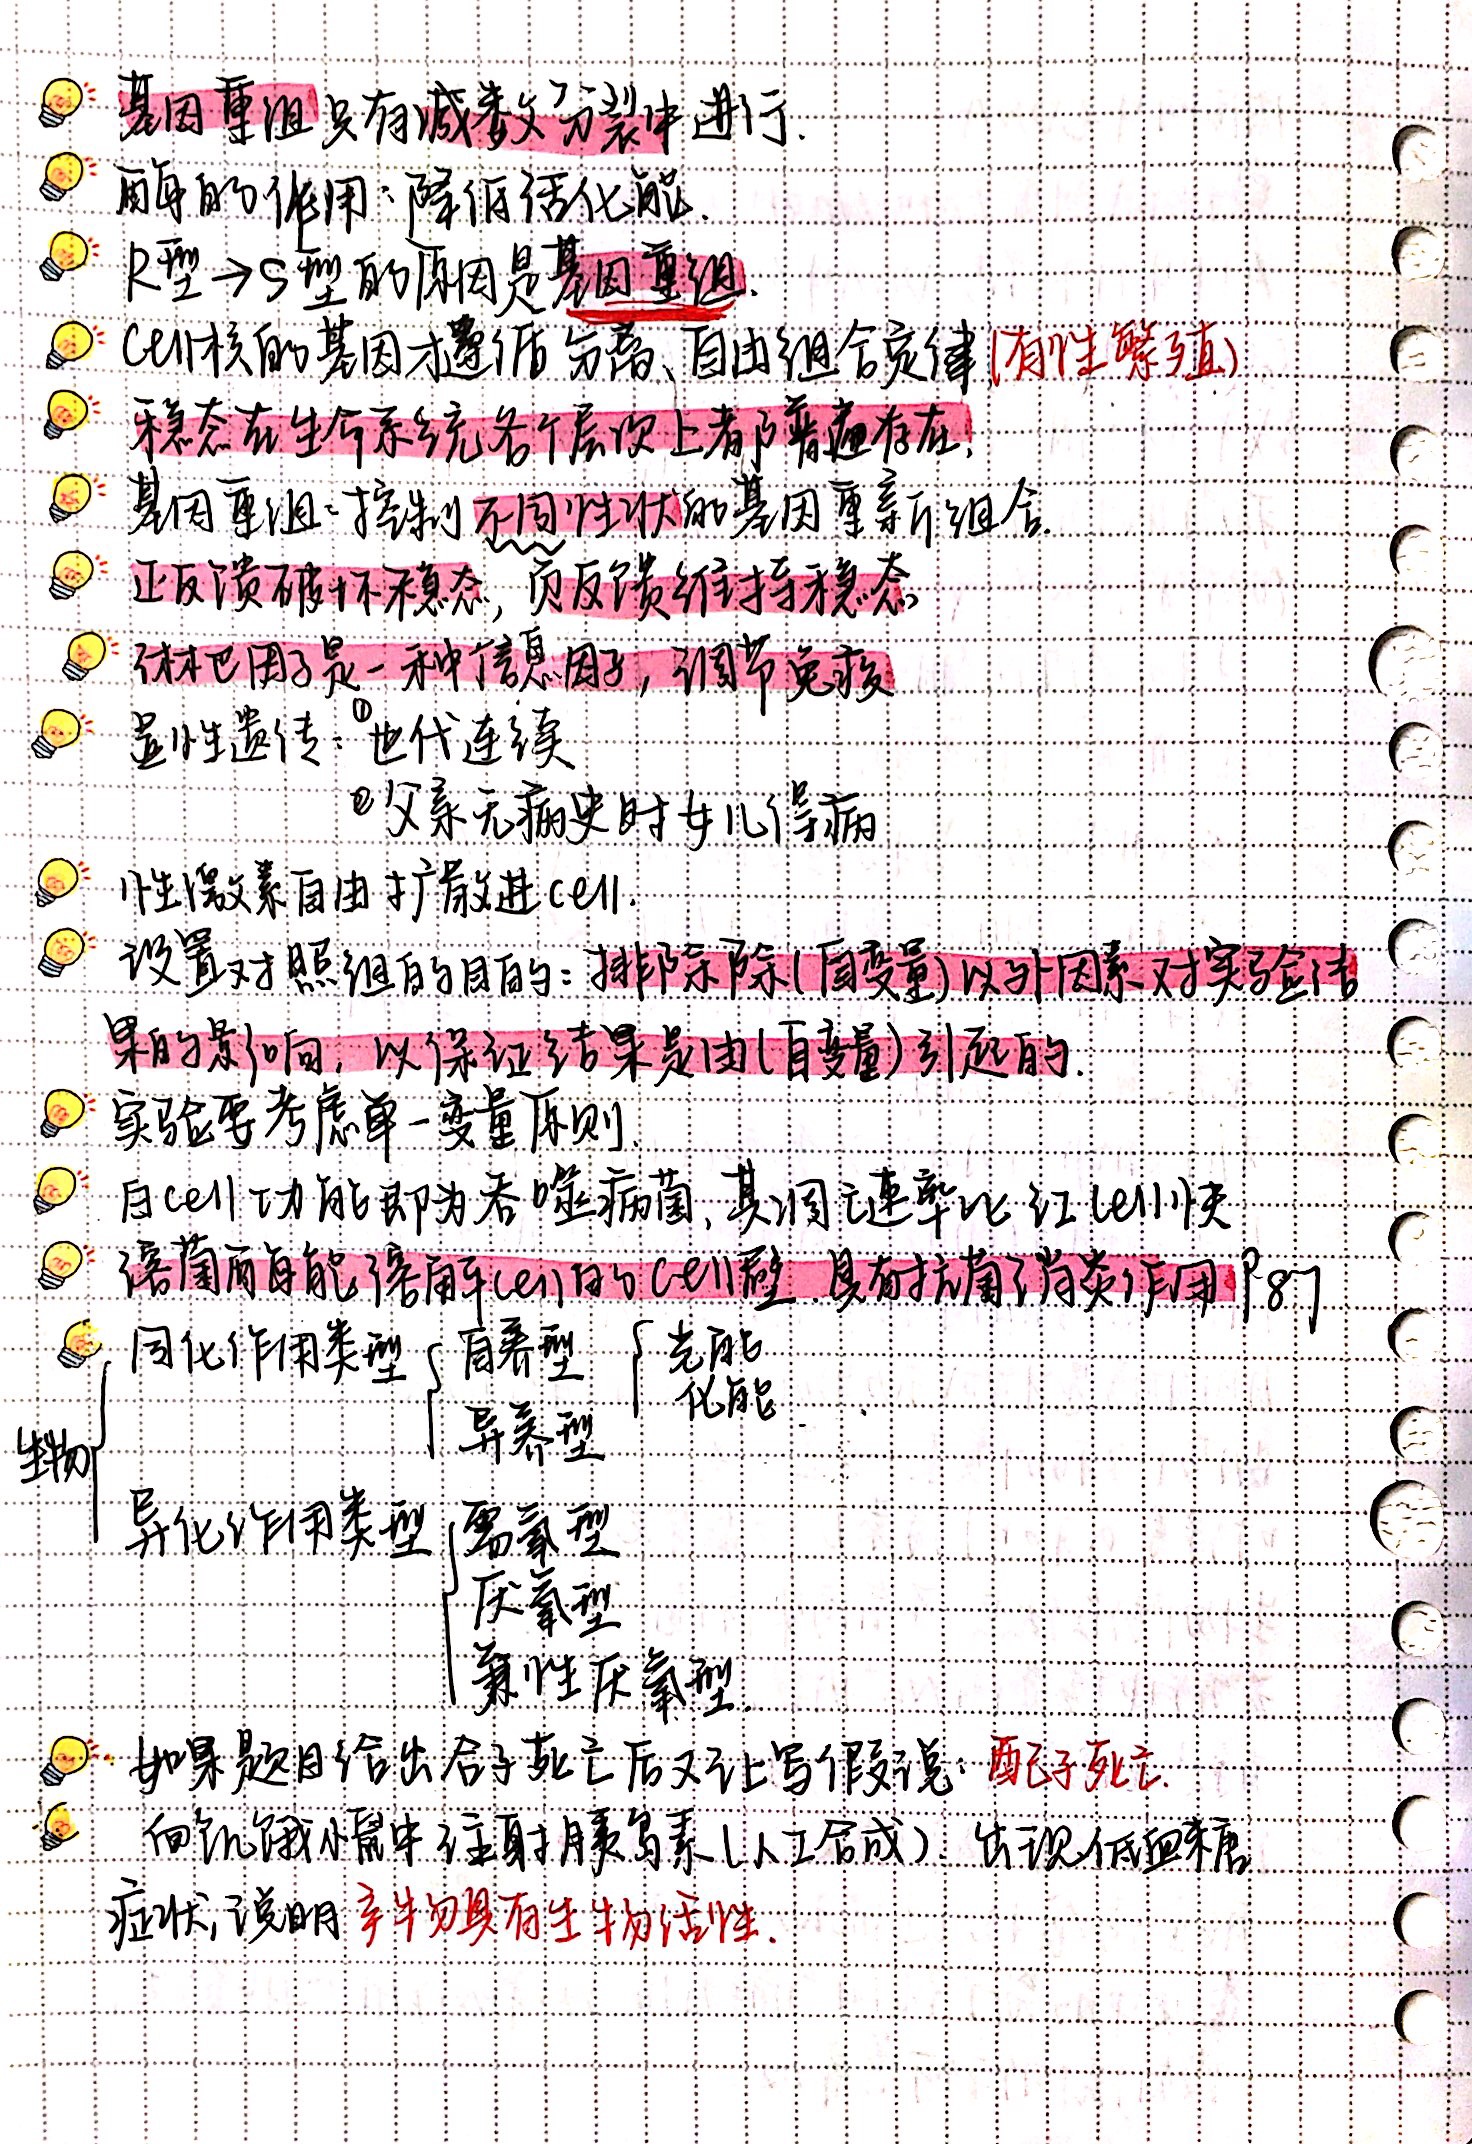 基因重组只有减数分裂中进行.
酶的作用:降低活化能.
R型→S型的原因是基因重组.
Cell核的基因才遵循分离、自由组合定律(有性繁殖)
稳态在生命系统各个层次上都普遍存在.
基因重组:控制不同性状的基因重新组合.
正反馈破坏稳态,负反馈维持稳态
淋巴因子是一种信息因子,调节免疫
显性遗传:①世代连续
②父亲无病史时女儿得病
性激素自由扩散进cell.
设置对照组的目的:排除除(自变量)以外因素对实验结
果的影响,以保证结果是由(自变量)引起的.
实验要考虑单一变量原则.
白cell功能即为吞噬病菌,其凋亡速率比红cell快
溶菌酶能溶解cell的cell壁.具有抗菌消炎作用 P87
同化作用类型 自养型 光能
化能
异养型
生物
异化作用类型 需氧型
厌氧型
兼性厌氧型.
如果题目给出合子死亡后又让写假说:配子死亡.
向饥饿小鼠中注射胰岛素(人工合成).出现低血糖
症状,说明产物具有生物活性.